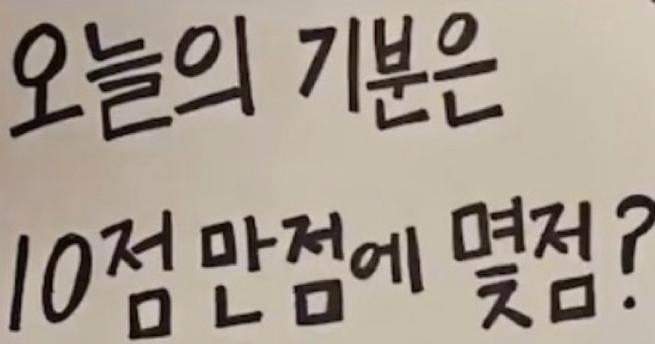 오늘의 기분은
10점 만점에 몇점?